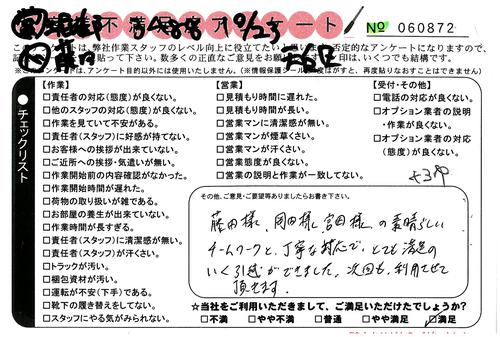 不満足アンケート 10/25
No 060872
このアンケートは、弊社作業スタッフのレベル向上に役立てたい
否定的なアンケートになりますので、
貼って下さい。数多くの正直なご意見をお願
印は、いくつでも結構です。
アンケート目的以外には使用いたしません。
がすと、再度貼りなおすことができません
チェックリスト
【作業】
□責任者の対応(態度)が良くない。
□他のスタッフの対応(態度)が良くない。
□作業を見ていて不安がある。
□責任者(スタッフ)に好感が持てない。
□お客様への挨拶が出来ていない。
□ご近所への挨拶・気遣いが無い。
□作業開始前の内容確認がなかった。
□作業開始時間が遅れた。
□荷物の取り扱いが雑である。
□お部屋の養生が出来ていない。
□作業時間が長すぎる。
□責任者(スタッフ)に清潔感が無い。
□責任者(スタッフ)が汗くさい。
□トラックが汚い。
□梱包資材が汚い。
□運転が不安(下手)である。
□靴下の履き替えをしてない。
□スタッフにやる気がみられない。
【営業】
□見積もり時間に遅れた。
□見積もり時間が長い。
□営業マンに清潔感が無い。
□営業マンが煙草くさい。
□営業マンが汗くさい。
□営業態度が良くない。
□営業の説明と作業が一致してない。
【受付・その他】
□電話の対応が良くない。
□オプション業者の説明
・作業が良くない。
□オプション業者の対応
(態度)が良くない。
その他、ご意見・ご要望等ありましたらお書き下さい。
藤田様、岡田様、宮田様の素晴らしい
チームワークと、丁寧な対応で、とても満足の
いく引越ができました。次回も、利用させて
頂きます。
☆当社をご利用いただきまして、ご満足いただけたでしょうか?
□不満 □やや不満 □普通 □やや満足 □満足